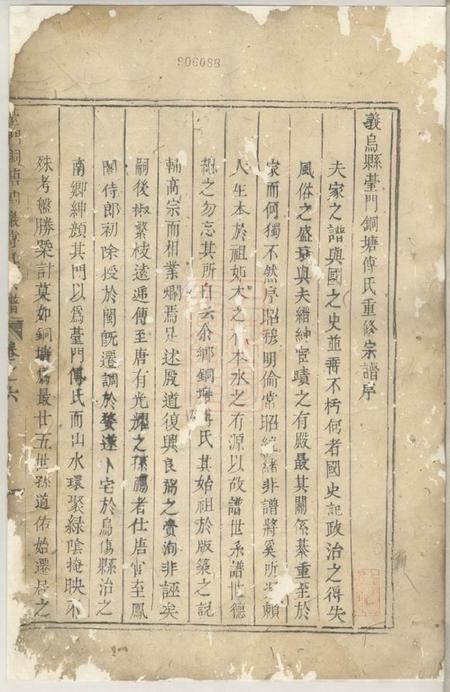 906088
義烏縣臺門銅塘傅氏重修宗譜序
夫家之譜與國之史並垂不朽何者國史記政治之得失
風俗之盛衰與夫縉紳宦蹟之有殿最其關係綦重至於
家而何獨不然序昭穆明倫常昭統緒非譜將奚所賴
人生本於祖如木之有本水之有源以故譜世系譜世德
之勿忘其所自云余鄉銅塘傅氏其始祖於版築之說
輔高宗而相業爛焉足述殷道復興良弼之賚洵非誣矣
嗣後椒繁枝遠遞傳至唐有光耀之孫者仕唐官至鳳
閣侍郎初除授於閩既遷調於婺遂卜宅於烏傷縣治之
南鄉紳顏其門以爲臺門傅氏而山水環聚綠陰掩映不
殊考盤勝槩計莫如銅塘爲最廿五世孫道佑始遷居之
門銅塘傅氏宗譜 卷之六